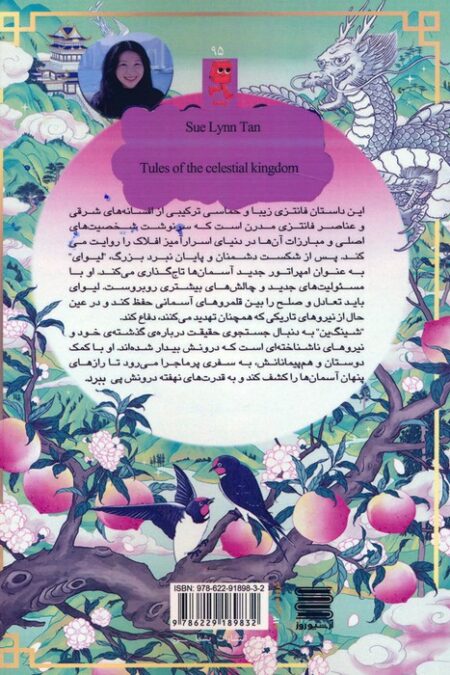 ۹۵
Sue Lynn Tan
Tules of the celestial kingdom
این داستان فانتزی زیبا و حماسی ترکیبی از افسانه‌های شرقی
و عناصر فانتزی مدرن است که سرنوشت شخصیت‌های
اصلی و مبارزات آن‌ها در دنیای اسرارآمیز افلاک را روایت می
کند. پس از شکست دشمنان و پایان نبرد بزرگ، "لیوای"
به عنوان امپراتور جدید آسمان‌ها تاج‌گذاری می‌کند. او با
مسئولیت‌های جدید و چالش‌های بیشتری روبروست. لیوای
باید تعادل و صلح را بین قلمروهای آسمانی حفظ کند و در عین
حال از نیروهای تاریکی که همچنان تهدید می‌کنند، دفاع کند.
"شینگین" به دنبال جستجوی حقیقت درباره‌ی گذشته‌ی خود و
نیروهای ناشناخته‌ای است که درونش بیدار شده‌اند. او با کمک
دوستان و هم‌پیمانانش، به سفری پرماجرا می‌رود تا رازهای
پنهان آسمان‌ها را کشف کند و به قدرت‌های نهفته درونش پی ببرد.
ISBN: 978-622-91898-3-2
9 786229 189832